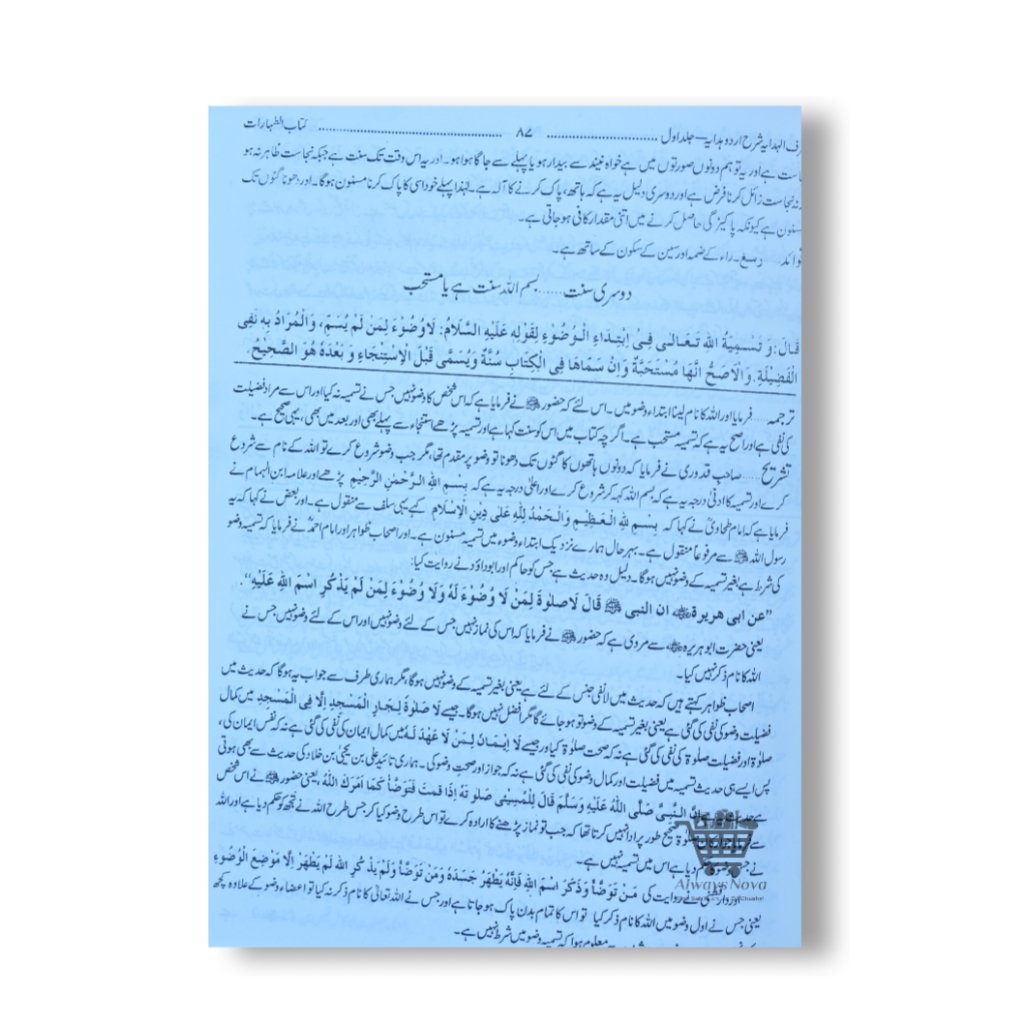 رف الہدایہ شرح اردو ہدایہ — جلد اول ........ ۸۷ ........ کتاب الطہارات
است ہے اور یہ تو ہم دونوں صورتوں میں ہے خواہ نیند سے بیدار ہو یا پہلے سے جاگا ہوا ہو۔ اور یہ اس وقت تک سنت ہے جبکہ نجاست ظاہر نہ ہو
نہ نجاست زائل کرنا فرض ہے اور دوسری دلیل یہ ہے کہ ہاتھ، پاک کرنے کا آلہ ہے۔ لہٰذا پہلے خود اسی کا پاک کرنا مسنون ہوگا۔ اور دھونا گٹوں تک
سنون ہے کیونکہ پاکیزگی حاصل کرنے میں اتنی مقدار کافی ہو جاتی ہے۔
وائد رسغ۔ راء کے ضمہ اور سین کے سکون کے ساتھ ہے۔
دوسری سنت ...... بسم اللہ سنت ہے یا مستحب
قَالَ: وَ تَسْمِيَةُ اللهِ تَعَالٰى فِىْ اِبْتِدَاءِ الْوُضُوْءِ لِقَوْلِهٖ عَلَيْهِ السَّلَامُ: لَاوُضُوْءَ لِمَنْ لَمْ يُسَمِّ، وَالْمُرَادُ بِهٖ نَفْىُ
الْفَضِيْلَةِ. وَالْاَصَحُّ اَنَّهَا مُسْتَحَبَّةٌ وَاِنْ سَمَاهَا فِى الْكِتَابِ سُنَّةً وَيُسَمِّى قَبْلَ الْاِسْتِنْجَاءِ وَ بَعْدَهٗ هُوَ الصَّحِيْحُ.
ترجمہ..... فرمایا اور اللہ کا نام لینا ابتداء وضو میں۔ اس لئے کہ حضور ﷺ نے فرمایا ہے کہ اس شخص کا وضو نہیں جس نے تسمیہ نہ کہا اور اس سے مراد فضیلت
کی نفی ہے اور اصح یہ ہے کہ تسمیہ مستحب ہے۔ اگرچہ کتاب میں اس کو سنت کہا ہے اور تسمیہ پڑھے استنجاء سے پہلے بھی اور بعد میں بھی، یہی صحیح ہے۔
تشریح ...... صاحب قدوری نے فرمایا کہ دونوں ہاتھوں کا گٹوں تک دھونا تو وضو پر مقدم تھا، مگر جب وضو شروع کرے تو اللہ کے نام سے شروع
کرے اور تسمیہ کا ادنیٰ درجہ یہ ہے کہ بسم اللہ کہہ کر شروع کرے اور اعلیٰ درجہ یہ ہے کہ بِسمِ اللهِ الرَّحْمٰنِ الرَّحِیْمِ پڑھے اور علامہ ابن الہمام نے
فرمایا ہے کہ امام طحاویؒ نے کہا کہ بِسْمِ للهِ الْعَظِيْمِ وَالْحَمْدُ لِلّٰهِ عَلٰى دِيْنِ الْاِسْلَامِ کہے یہی سلف سے منقول ہے۔ اور بعض نے کہا کہ یہ
رسول اللہ ﷺ سے مرفوعاً منقول ہے۔ بہرحال ہمارے نزدیک ابتداء وضوء میں تسمیہ مسنون ہے۔ اور اصحاب ظواہر اور امام احمدؒ نے فرمایا کہ تسمیہ وضو
کی شرط ہے بغیر تسمیہ کے وضو نہیں ہوگا۔ دلیل وہ حدیث ہے جس کو حاکم اور ابوداؤد نے روایت کیا:
”عن ابی هریرةؓ ان النبی ﷺ قَالَ لَاصلوٰةَ لِمَنْ لَا وُضُوْءَ لَهٗ وَلَا وُضُوْءَ لِمَنْ لَمْ يَذْكُرِ اسْمَ اللهِ عَلَيْهِ“.
یعنی حضرت ابو ہریرہؓ سے مروی ہے کہ حضور ﷺ نے فرمایا کہ اس کی نماز نہیں جس کے لئے وضو نہیں اور اس کے لئے وضو نہیں جس نے
اللہ کا نام ذکر نہیں کیا۔
اصحاب ظواہر کہتے ہیں کہ حدیث میں لا نفی جنس کے لئے ہے یعنی بغیر تسمیہ کے وضو نہیں ہوگا، مگر ہماری طرف سے جواب یہ ہوگا کہ حدیث میں
فضیلت وضو کی نفی کی گئی ہے یعنی بغیر تسمیہ کے وضو تو ہو جائے گا مگر افضل نہیں ہوگا۔ جیسے لَا صَلٰوةَ لِجَارِ الْمَسْجِدِ اِلَّا فِى الْمَسْجِدِ میں کمال
صلوٰۃ اور فضیلت صلوٰۃ کی نفی کی گئی ہے نہ کہ صحت صلوٰۃ کی اور جیسے لَا اِيْمَانَ لِمَنْ لَا عَهْدَ لَهٗ میں کمال ایمان کی نفی کی گئی ہے نہ کہ نفس ایمان کی،
پس ایسے ہی حدیث تسمیہ میں فضیلت اور کمال وضو کی نفی کی گئی ہے نہ کہ جواز اور صحت وضو کی۔ ہماری تائید علی بن یحییٰ بن خلاد کی حدیث سے بھی ہوتی
ہے حدیث النَّبِىَّ صَلَّى اللهُ عَلَيْهِ وَسَلَّمَ قَالَ لِلْمُسِيْئِى صَلوٰتَهٗ اِذَا قمتَ فَتَوَضَّأْ كَمَا اَمَرَكَ اللهُ، یعنی حضور ﷺ نے اس شخص
سے فرمایا جو صحیح طور پر ادا نہیں کرتا تھا کہ جب تو نماز پڑھنے کا ارادہ کرے تو اس طرح وضو کیا کر جس طرح اللہ نے تجھ کو حکم دیا ہے اور اللہ
نے جس وضو دیا ہے اس میں تسمیہ نہیں ہے۔
اور دار قطنی نے روایت کی مَنْ تَوَضَّأَ وَذَكَرَ اسْمَ اللهِ فَاِنَّهٗ يَطْهُرُ جَسَدُهٗ وَمَنْ تَوَضَّأَ وَلَمْ يَذْكُرِ اللهَ لَمْ يَطْهُرْ اِلَّا مَوْضِعَ الْوُضُوْءِ
یعنی جس نے اول وضو میں اللہ کا نام ذکر کیا تو اس کا تمام بدن پاک ہو جاتا ہے اور جس نے اللہ تعالیٰ کا نام ذکر نہ کیا تو اعضاء وضو کے علاوہ کچھ
معلوم ہوا کہ تسمیہ وضو میں شرط نہیں ہے۔
Always Nova